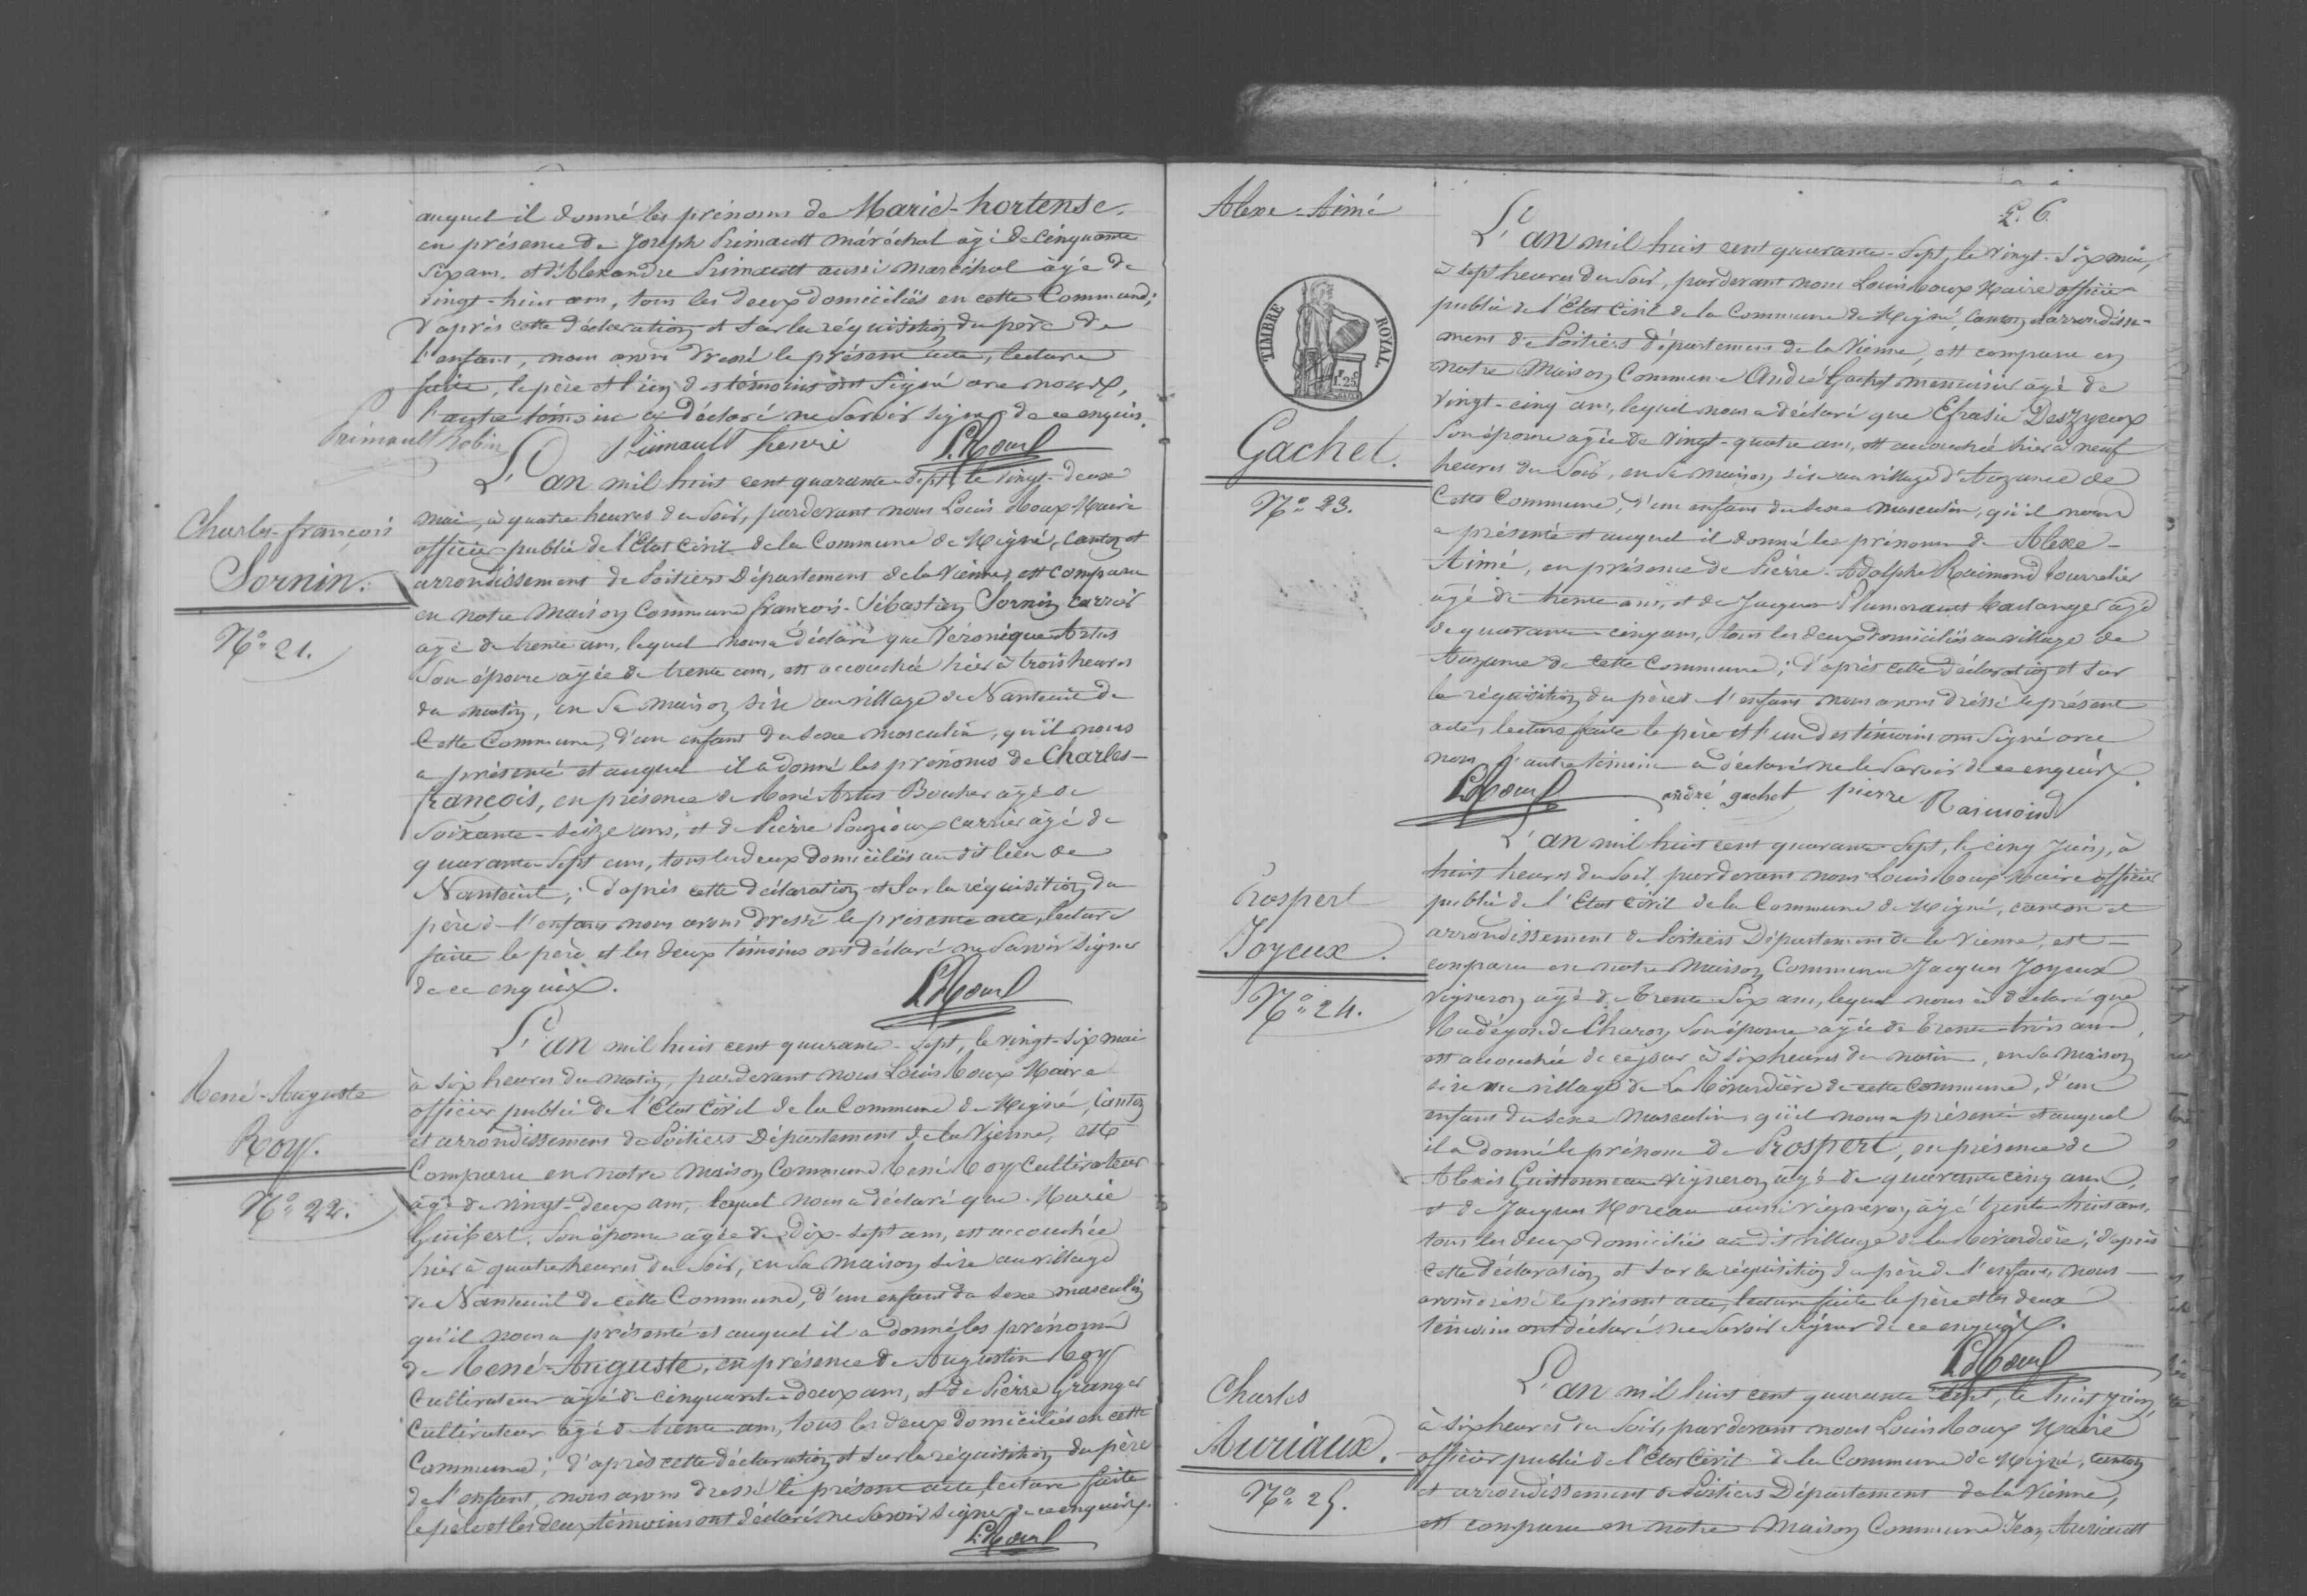 auquel il donné les prénoms de Marie-hortense.
en présence de Joseph Primault maréchal âgé de cinquante
six ans, et d'Alexandre Primault aussi maréchal âgé de
vingt-huit ans, tous les deux domiciliés en cette Commune;
d'après cette déclaration et sur la réquisition du père de
l'enfant, nous avons dressé le présent acte, lecture
faite, le père et l'un des témoins ont signé avec nous,
l'autre témoin a déclaré ne savoir signer de ce enquis.
Primault robin Primault henri L. Roux
Charles-françois
Sornin.
N° 21.
L'an mil huit cent quarante-sept, le vingt-deux
mai, à quatre heures du soir, pardevant nous Louis Roux Maire
officier public de l'Etat Civil de la Commune de Migné, canton et
arrondissement de Poitiers Département de la Vienne, est comparu
en notre maison Commune françois-Sébastien Sornin carrier
âgé de trente ans, lequel nous a déclaré que Véronique Artus
Son épouse âgée de trente ans, est accouchée hier à trois heures
du matin, en sa maison sise au village de Nanteuil de
Cette Commune, d'un enfant du sexe masculin, qu'il nous
a présenté et auquel il a donné les prénoms de Charles-
françois, en présence de René Artus Boucher âgé de
soixante-seize ans, et de Pierre carrier âgé de
quarante-sept ans, tous les deux domiciliés au dit lieu de
Nanteuil; d'après cette déclaration et sur la réquisition du
père de l'enfant nous avons dressé le présente acte, lecture
faite le père et les deux témoins ont déclaré ne savoir signer
de ce enquis.
L. Roux
René-Auguste
Roy.
N° 22.
L'an mil huit cent quarante-sept, le vingt-six mai
à six heures du matin, pardevant nous Louis Roux Maire
officier public de l'Etat Civil de la Commune de Migné, canton
et arrondissement de Poitiers Département de la Vienne, est
Comparu en notre maison Commune René Roy Cultivateur
âgé de vingt-deux ans, lequel nous a déclaré que Marie
Guibert, Son épouse âgée de dix-sept ans, est accouchée
hier à quatre heures du soir, en sa maison sise au village
de Nanteuil de cette Commune, d'un enfant du sexe masculin
qu'il nous a présenté et auquel il a donné les prénoms
de René-Auguste, en présence de Augustin Roy
Cultivateur âgé de cinquante deux ans, et de Pierre Granger
Cultivateur âgé de trente ans, tous les deux domiciliés en cette
Commune; d'après cette déclaration et sur la réquisition du père
de l'enfant, nous avons dressé le présent acte, lecture faite
le père et les deux témoins ont déclaré ne savoir signer de ce enquis.
L. Roux
Alexe-Aimé
TIMBRE ROYAL
1.25
Gachet.
N° 23.
f. 6.
L'an mil huit cent quarante-sept, le vingt-six mai,
à sept heures du soir, pardevant nous Louis Roux Maire officier
public de l'Etat Civil de la Commune de Migné, canton et arrondisse-
ment de Poitiers Département de la Vienne, est comparu en
notre Maison Commune André Gachet menuisier âgé de
Vingt-cinq ans, lequel nous a déclaré que Efrasie Deszyeux
Son épouse âgée de vingt-quatre ans, est accouchée hier à neuf
heures du soir, en sa maison sise au village d'Auzance de
Cette Commune, d'un enfant du sexe masculin, qu'il nous
a présenté et auquel il donné les prénoms de Alexe-
Aimé, en présence de Pierre-Adolphe Raimond bourrelier
âgé de trente ans, et de Jacques boulanger âgé
de quarante-cinq ans, tous les deux domiciliés au village de
Auzance de cette commune; d'après cette déclaration et sur
la réquisition du père de l'enfant nous avons dressé le présent
acte, lecture faite le père et l'un des témoins ont signé avec
nous l'autre témoin a déclaré ne le savoir de ce enquis.
L. Roux andré gachet pierre Raimond
Prospert
Joyeux.
N° 24.
L'an mil huit cent quarante-sept, le cinq Juin, à
huit heures du soir, pardevant nous Louis Roux Maire officier
public de l'Etat Civil de la Commune de Migné, canton et
arrondissement de Poitiers Département de la Vienne, est
comparu en notre maison Commune Jacques Joyeux
vigneron âgé de trente-six ans, lequel nous a déclaré que
Radégonde Charon Son épouse âgée de trente-trois ans,
est accouchée de ce jour à six heures du matin, en sa maison
sise au village de La Mirandière de cette commune, d'un
enfant du sexe masculin qu'il nous a présenté et auquel
il a donné le prénom de Prospert, en présence de
Alexis Guittonneau vigneron âgé de quarante cinq ans,
et de Jacques Moreau aussi vigneron âgé trente huit ans,
tous les deux domiciliés au dit village de la Mirandière; d'après
cette déclaration et sur la réquisition du père de l'enfant, nous
avons dressé le présent acte, lecture faite le père et les deux
témoins ont déclaré ne savoir signer de ce enquis.
L. Roux
Charles
Auriaux.
N° 25.
L'an mil huit cent quarante sept, le huit juin,
à six heures du soir, pardevant nous Louis Roux Maire
officier public de l'Etat Civil de la Commune de Migné, canton
et arrondissement de Poitiers Département de la Vienne,
est comparu en notre maison Commune Jean Auriault